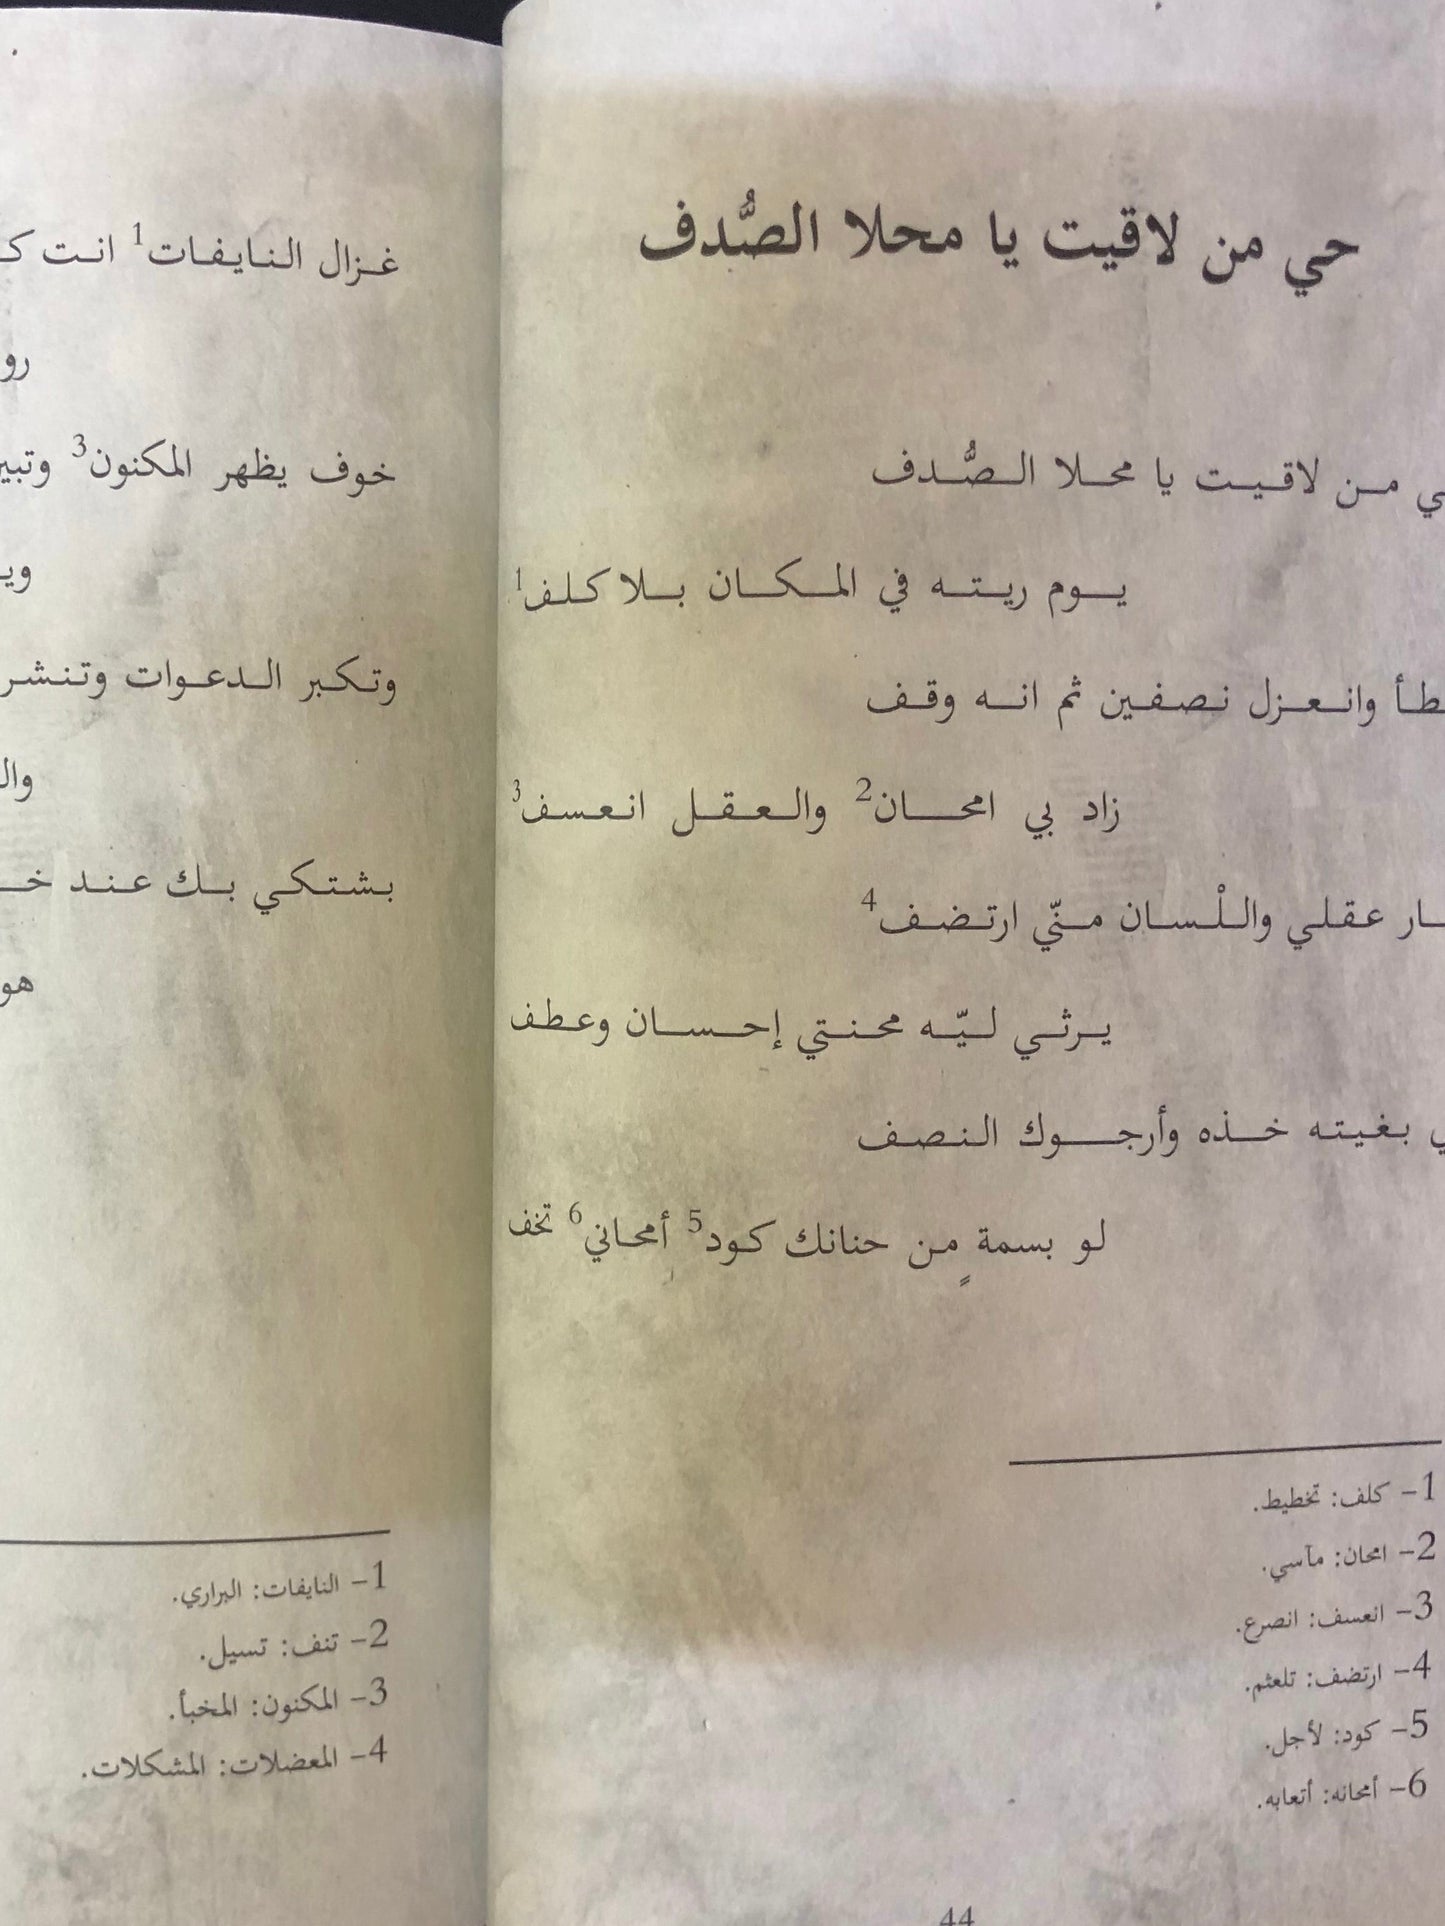 حي من لاقيت يا محلا الصُّدف
من لاقيت يا محلا الصُّدف
يوم ريته في المكان بلا كلف1
وانعزل نصفين ثم انه وقف
زاد بي امحان2 والعقل انعسف3
عقلي واللْسان منّي ارتضف4
يرثي ليّه محنتي إحسان وعطف
بغيته خذه وأرجوك النصف
لو بسمةٍ من حنانك كود5 أمحاني6 تخف
1- كلف: تخطيط.
2- امحان: مآسي.
3- انعسف: انصرع.
4- ارتضف: تلعثم.
5- كود: لأجل.
6- أمحانه: أتعابه.
44
غزال النايفات1 انت
خوف يظهر المكنون3
وتكبر الدعوات وتنشر
بشتكي بك عند
1- النايفات: البراري.
2- تنف: تسيل.
3- المكنون: المخبأ.
4- المعضلات: المشكلات.